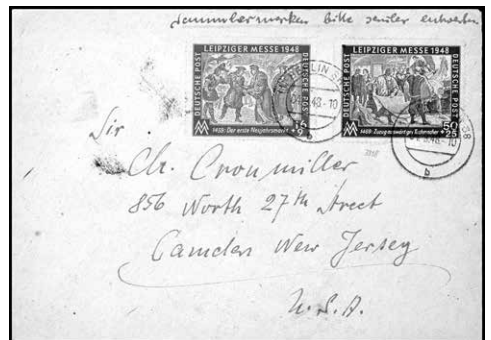 Sammlermarken Bitte sauber entwerten
LEIPZIGER MESSE 1948
DEUTSCHE POST
DEUTSCHE POST
1459: Der erste Neujahrsmarkt
16
+9
LEIPZIGER MESSE 1948
DEUTSCHE POST
DEUTSCHE POST
50
+25
48.-10
b
b
Sir
Chr. Cronmiller
856 North 27th Street
Camden New Jersey
U.S.A.